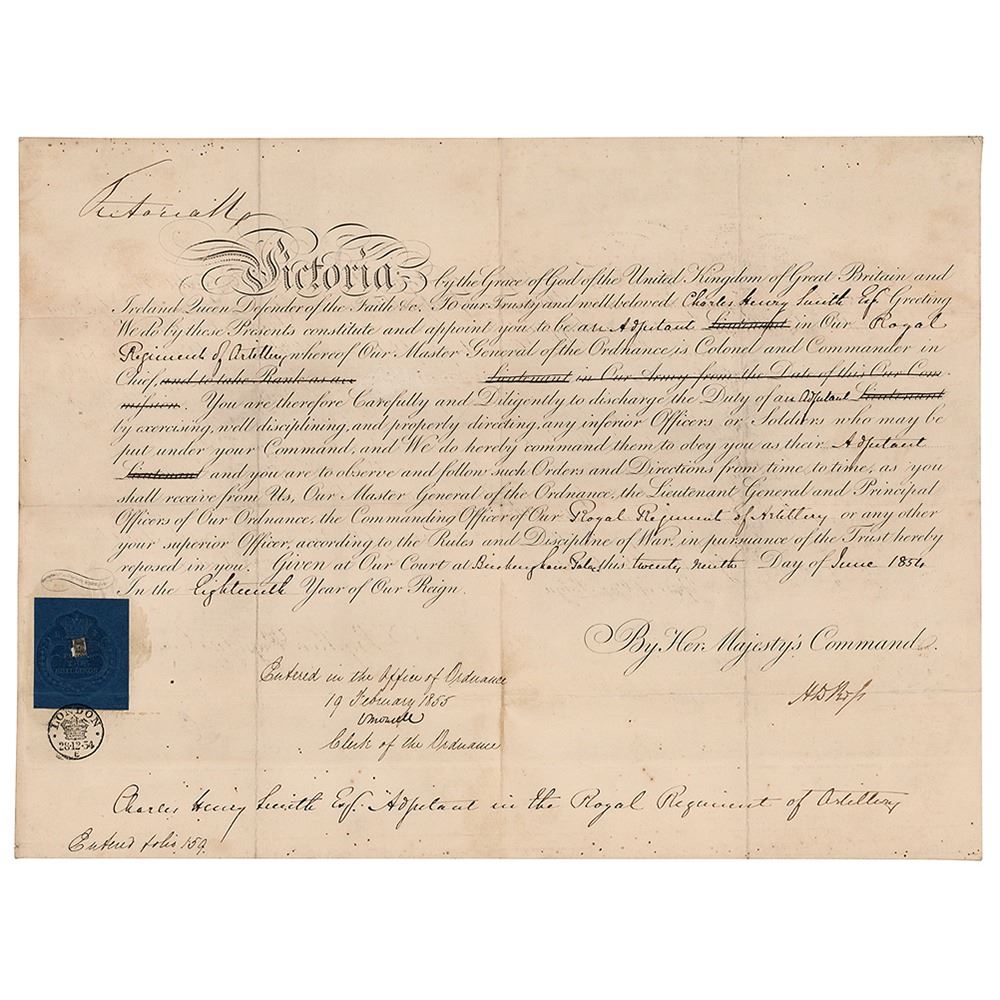 Victoria R
Victoria by the Grace of God of the United Kingdom of Great Britain and
Ireland Queen Defender of the Faith &c. To our Trusty and well beloved Charles Henry Smith Esq Greeting
We do by these Presents constitute and appoint you to be an Adjutant Lieutenant in Our Royal
Regiment of Artillery, whereof Our Master General of the Ordnance, is Colonel and Commander in
Chief, and to take Rank as an Lieutenant in Our Army from the Date of this Our Com-
mission. You are therefore Carefully and Diligently to discharge the Duty of an Adjutant Lieutenant
by exercising, well disciplining, and properly directing, any inferior Officers or Soldiers who may be
put under your Command, and We do hereby command them to obey you as their Adjutant
Lieutenant and you are to observe and follow such Orders and Directions from time to time, as you
shall receive from Us, Our Master General of the Ordnance, the Lieutenant General and Principal
Officers of Our Ordnance, the Commanding Officer of Our Royal Regiment of Artillery or any other
your superior Officer, according to the Rules and Discipline of War, in pursuance of the Trust hereby
reposed in you. Given at Our Court at Buckingham Palace this twenty ninth Day of June 1854
In the Eighteenth Year of Our Reign.
By Her Majesty's Command.
HD Ross
Entered in the Office of Ordnance
19 February 1855
Clerk of the Ordnance
SHILLINGS
LONDON
28·12·54
E
Charles Henry Smith Esq. Adjutant in the Royal Regiment of Artillery
Entered folio 159.